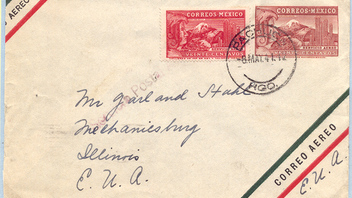 CORREOS MEXICO
SERVICIO AEREO
VEINTE CENTAVOS
CORREOS MEXICO
SERVICIO AEREO
VEINTE CENTAVOS
HGO.
Mr Garland Stahl
Mechanicsburg
Illinois
E. U. A.
CORREO AEREO
E. U. A.
AEREO